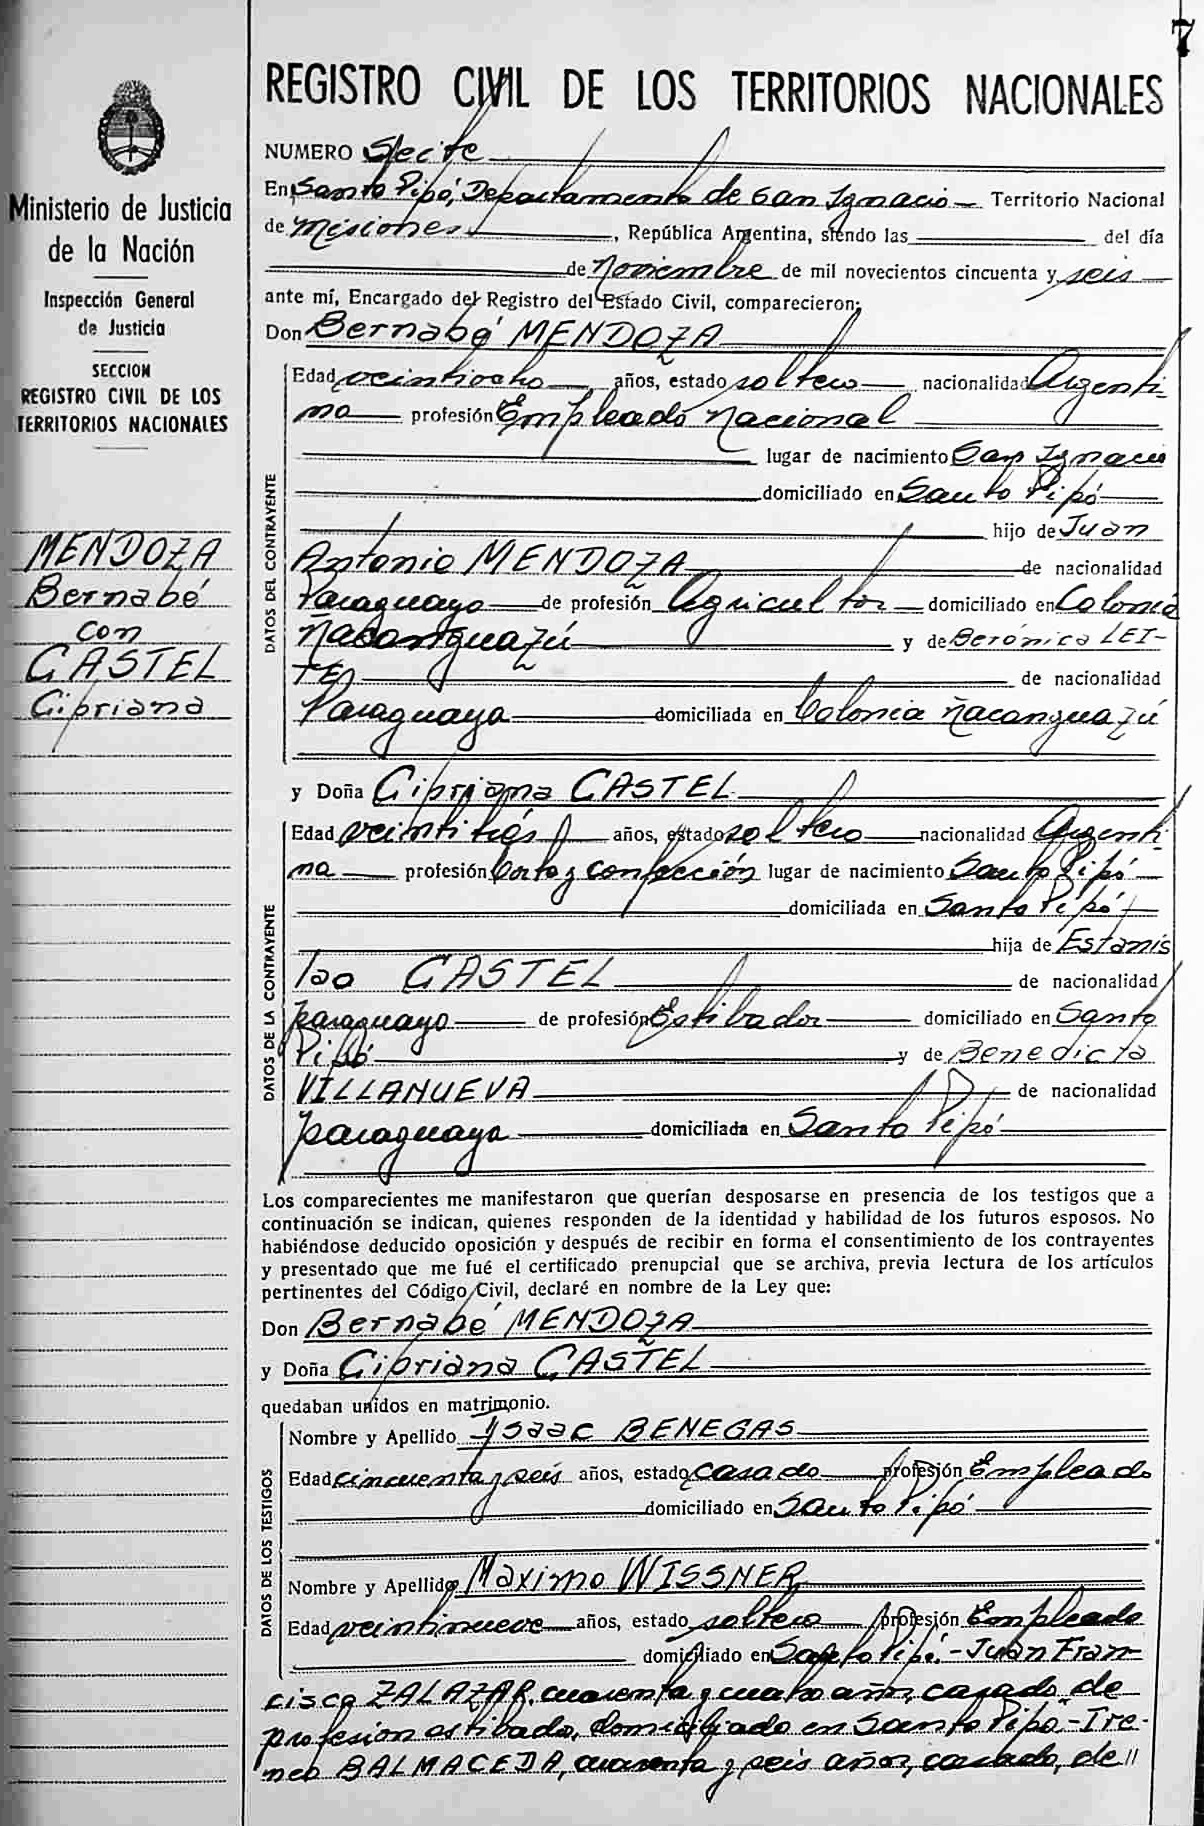 7
REGISTRO CIVIL DE LOS TERRITORIOS NACIONALES
NUMERO Siete
En Santo Pipó, Departamento de San Ignacio Territorio Nacional
de Misiones, República Argentina, siendo las del día
de Noviembre de mil novecientos cincuenta y seis
ante mí, Encargado del Registro del Estado Civil, comparecieron:
Don Bernabé MENDOZA
Edad veintiocho años, estado soltero nacionalidad Argenti-
na profesión Empleado Nacional
lugar de nacimiento San Ignacio
domiciliado en Santo Pipó
hijo de Juan
Antonio MENDOZA de nacionalidad
Paraguayo de profesión Agricultor domiciliado en Colonia
Ñacanguazú y de Berónica LEI-
TE de nacionalidad
Paraguaya domiciliada en Colonia Ñacanguazú
y Doña Cipriana CASTEL
Edad veintitrés años, estado soltera nacionalidad Argenti-
na profesión Corte y confección lugar de nacimiento Santo Pipó
domiciliada en Santo Pipó
hija de Estanis
lao CASTEL de nacionalidad
paraguayo de profesión Estibador domiciliado en Santo
Pipó y de Benedicta
VILLANUEVA de nacionalidad
paraguaya domiciliada en Santo Pipó
Los comparecientes me manifestaron que querían desposarse en presencia de los testigos que a
continuación se indican, quienes responden de la identidad y habilidad de los futuros esposos. No
habiéndose deducido oposición y después de recibir en forma el consentimiento de los contrayentes
y presentado que me fué el certificado prenupcial que se archiva, previa lectura de los artículos
pertinentes del Código Civil, declaré en nombre de la Ley que:
Don Bernabé MENDOZA
y Doña Cipriana CASTEL
quedaban unidos en matrimonio.
Nombre y Apellido Isaac BENEGAS
Edad cincuenta y seis años, estado casado profesión Empleado
domiciliado en Santo Pipó
Nombre y Apellido Maximo WISSNER
Edad veintinueve años, estado soltero profesión Empleado
domiciliado en Santo Pipó.-Juan Fran
cisco ZALAZAR, cuarenta y cuatro años, casado, de
profesion estibador, domiciliado en Santo Pipó.-Ire-
neo BALMACEDA, cuarenta y seis años, casado, de //
DATOS DEL CONTRAYENTE
DATOS DE LA CONTRAYENTE
DATOS DE LOS TESTIGOS
Ministerio de Justicia
de la Nación
Inspección General
de Justicia
SECCION
REGISTRO CIVIL DE LOS
TERRITORIOS NACIONALES
MENDOZA
Bernabé
con
CASTEL
Cipriana